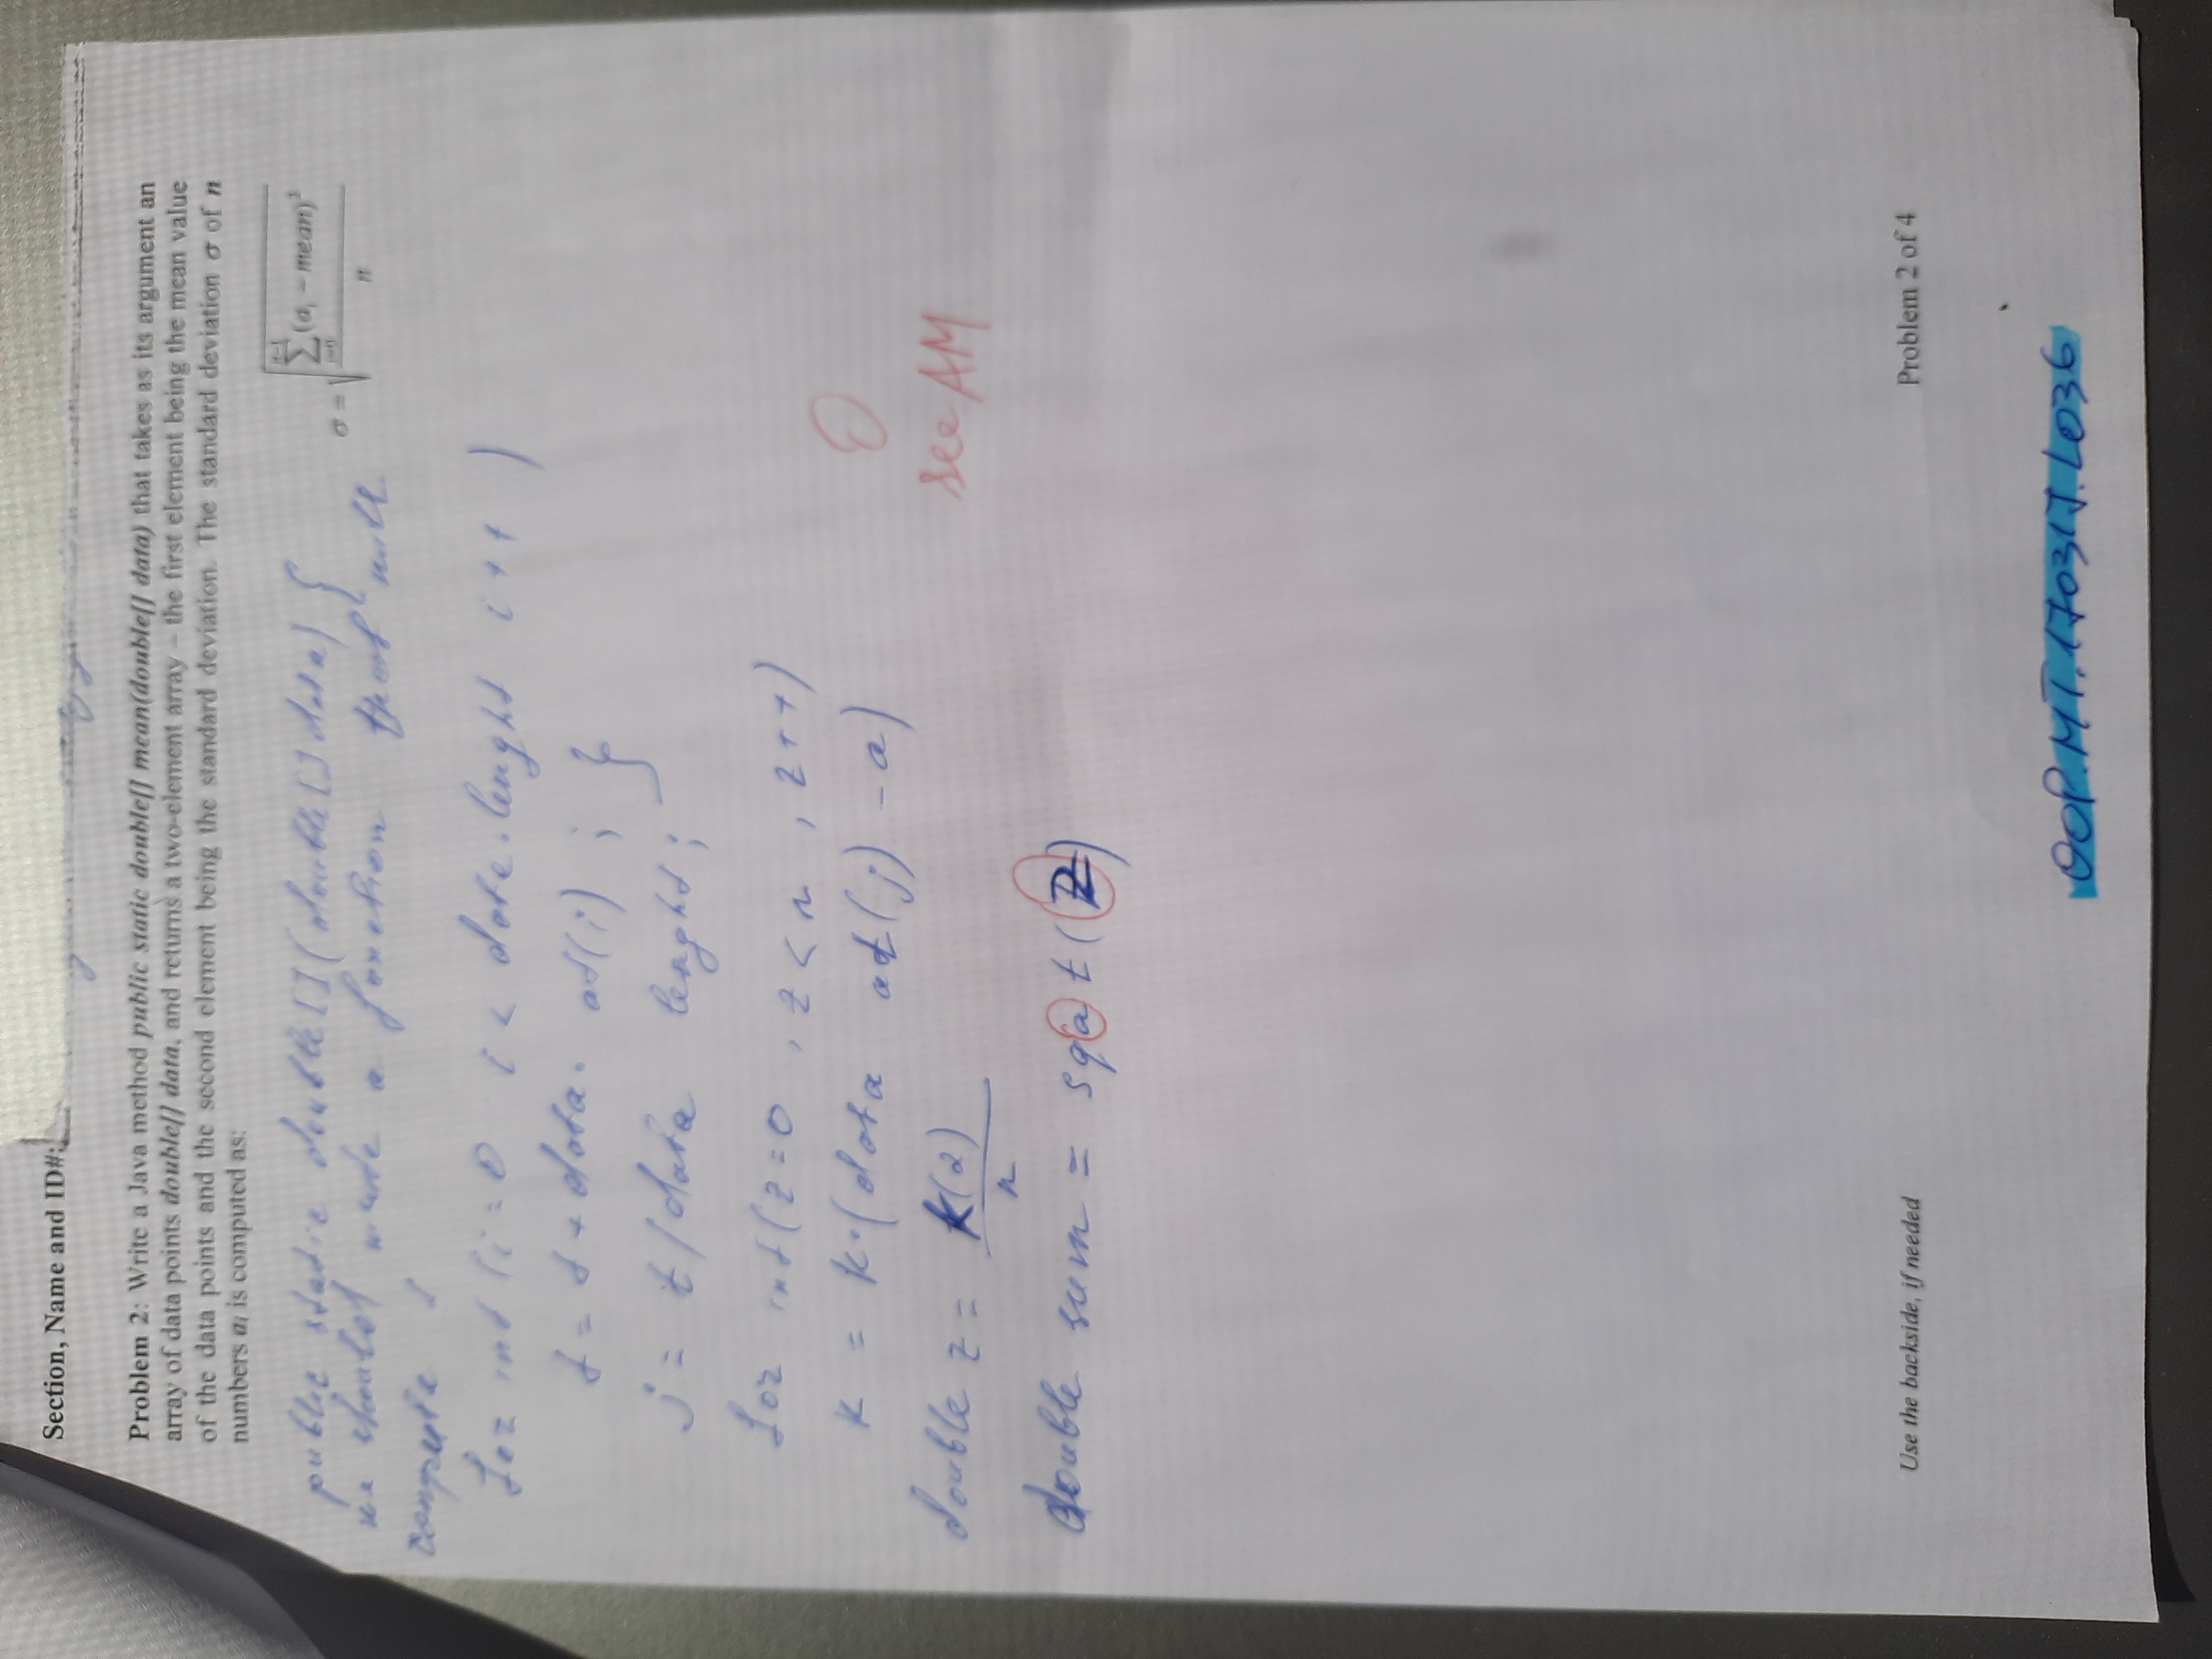 Section, Name and ID#:
Problem 2: Write a Java method public static double[] mean(double[] data) that takes as its argument an
array of data points double[] data, and returns a two-element array – the first element being the mean value
of the data points and the second element being the standard deviation. The standard deviation σ of n
numbers ai is computed as:
σ = √(∑(ai – mean)² / n)
public static double[](double[] data) {
we should make a fonction that will
compute
for int (i=0 i < date.lenght i++ )
t = t + data. at(i) ; }
j = t/data lenght;
for int(z=0 , z<n , z++)
k = k·(data at(j) - a)
double z = k(2)
n
double sum = sqat(Z)
0
see AM
Use the backside, if needed
Problem 2 of 4
OOP.MT.170317.L036